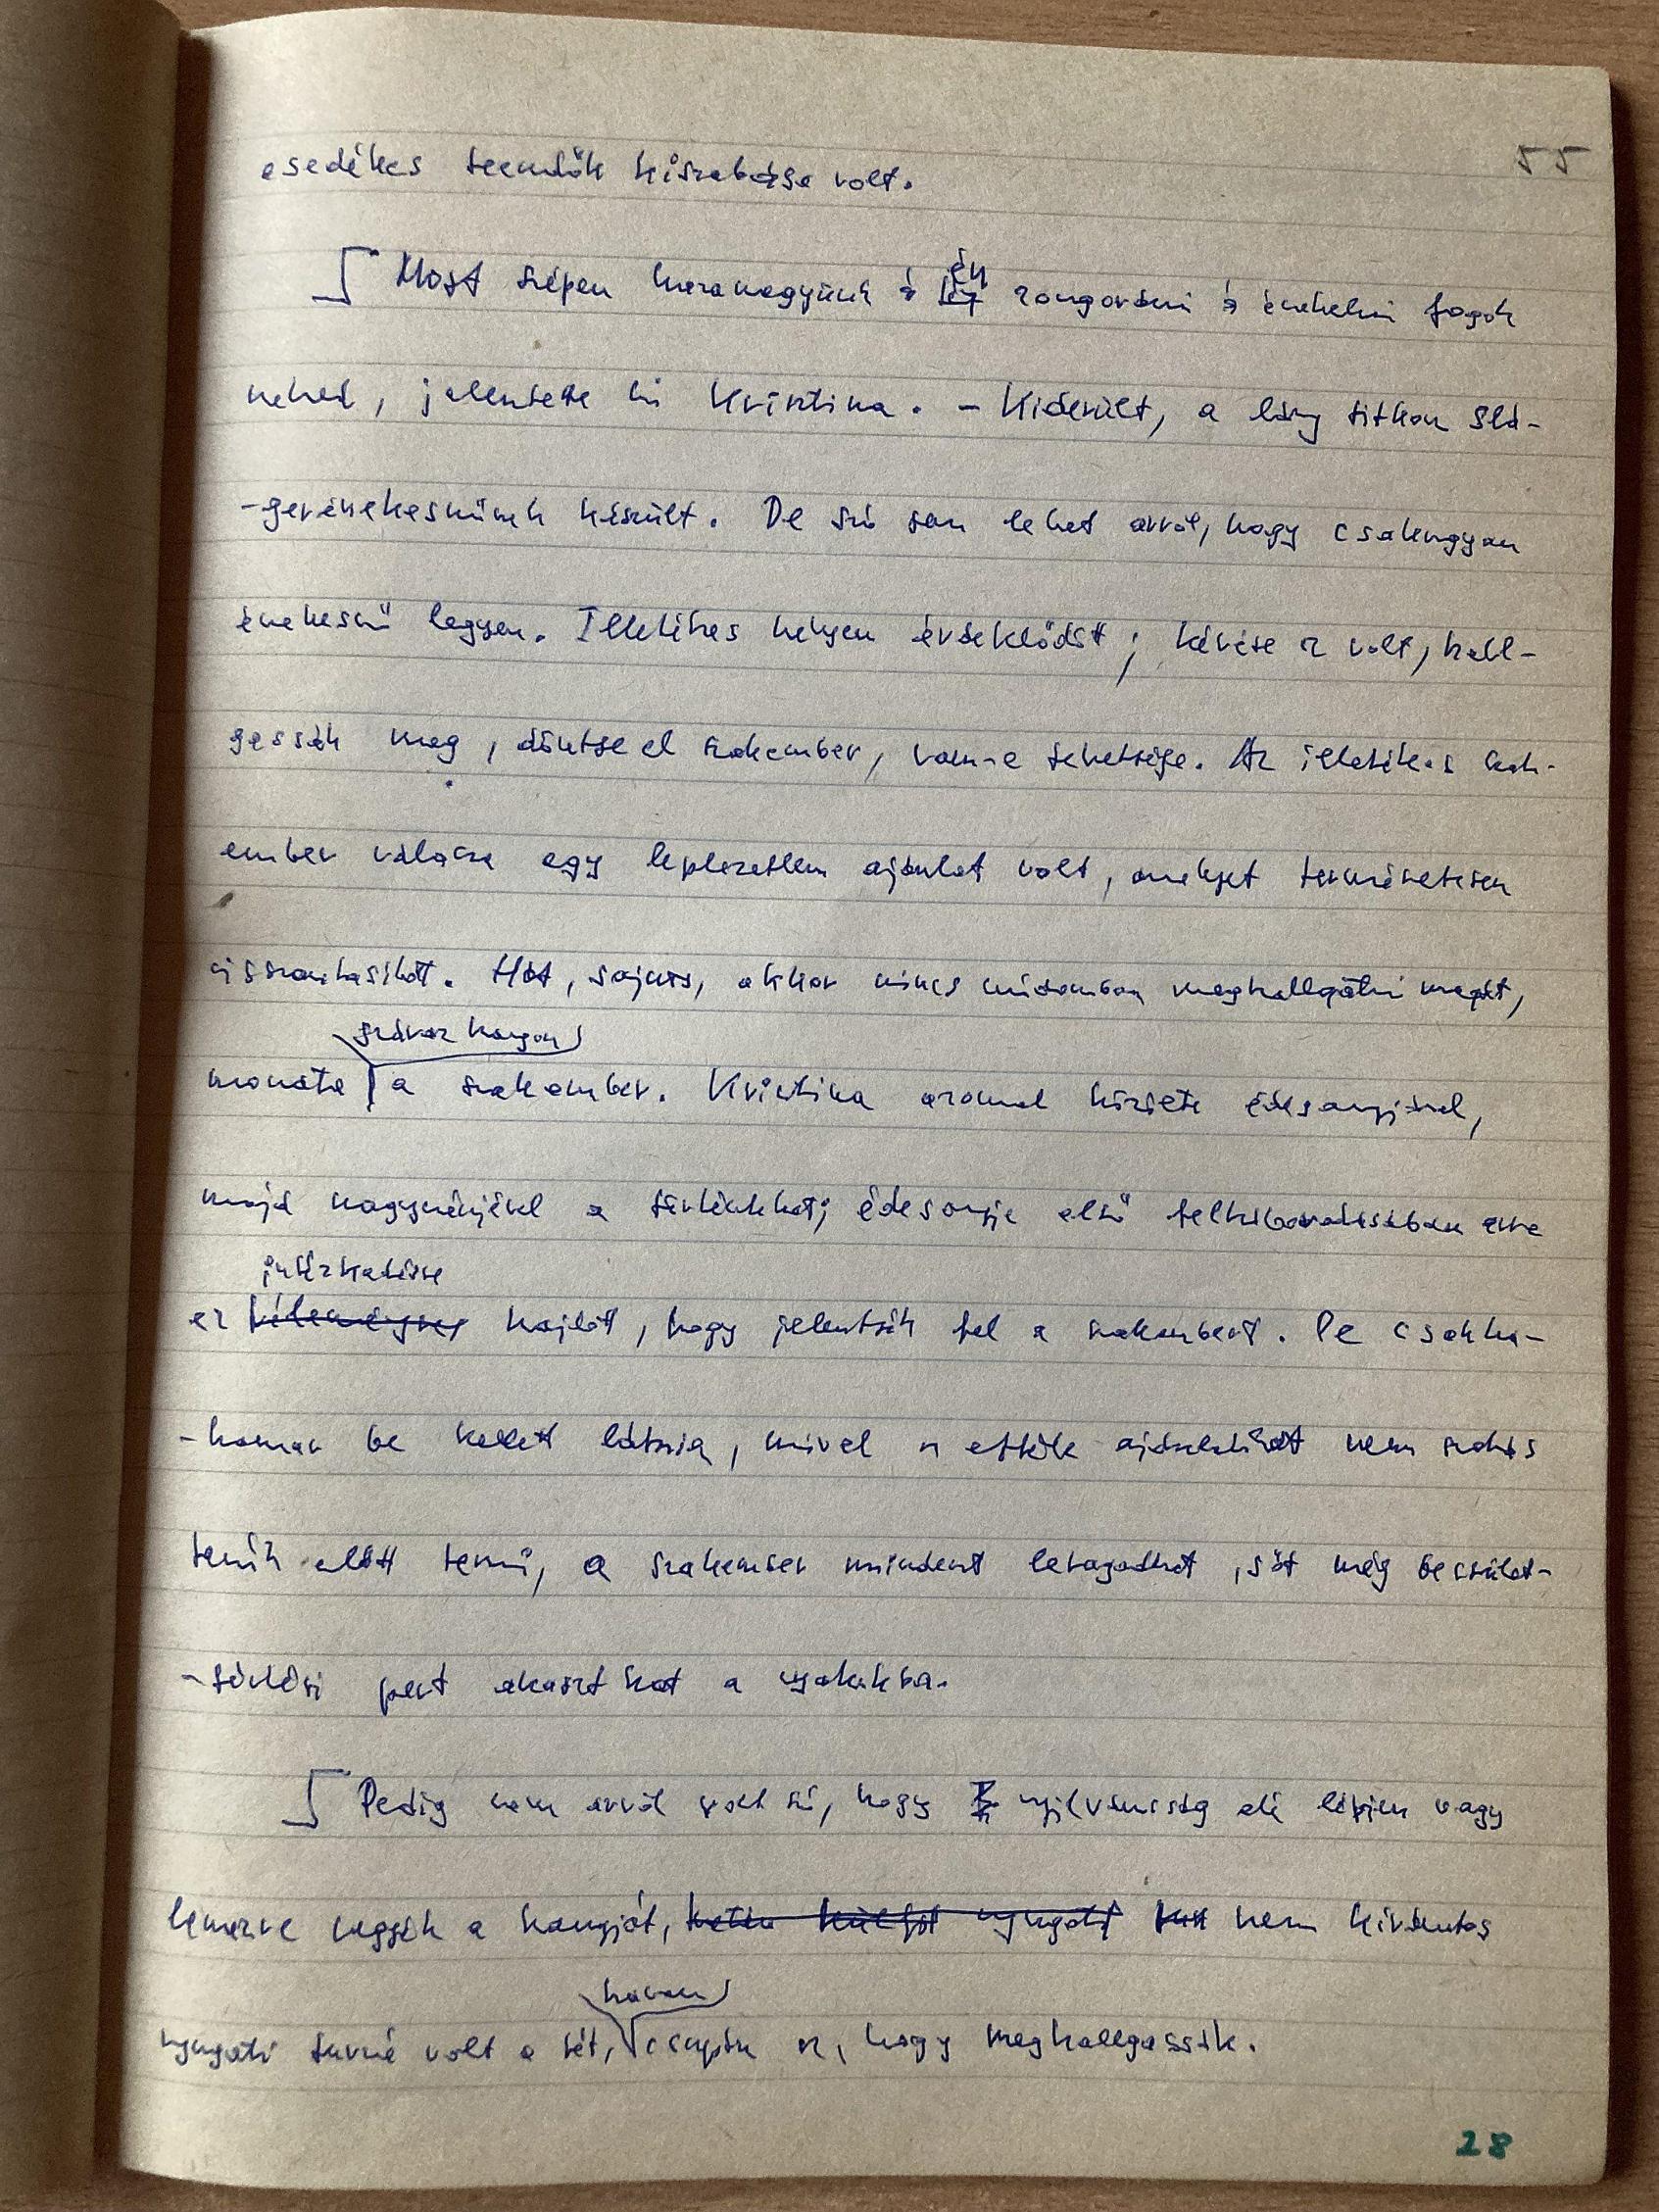 55
esedékes teendők kiszabása volt.
Most szépen hazamegyünk s én zongorázni s énekelni fogok
neked, jelentette ki Krisztina. – Kiderült, a lány titkon slá-
-gerénekesnőnek készült. De szó sem lehet arról, hogy csakugyan
énekesnő legyen. Illetékes helyen érdeklődött; kérése az volt, hall-
gassák meg, döntse el szakember, van-e tehetsége. Az illetékes szak-
ember válasza egy leplezetlen ajánlat volt, amelyet természetesen
visszautasított. Hát, sajnos, akkor nincs módomban meghallgatni magát,
száraz hangon
mondta a szakember. Krisztina azonnal közölte édesanyjával,
majd nagynénjével a történteket; édesanyja első felháborodásában arra
intézkedésre
az hajlott, hogy jelentsék fel a szakembert. De csakha-
-hamar be kellett látnia, mivel az efféle ajánlatokat nem szokás
tanúk előtt tenni, a szakember mindent letagadhat, sőt még becsület-
-sértési pert akaszthat a nyakukba.
Pedig nem arról volt szó, hogy nyilvánosság elé lépjen vagy
lemezre vegyék a hangját, nem kívánatos
hanem
nyugati turné volt a tét, csupán az, hogy meghallgassák.
28